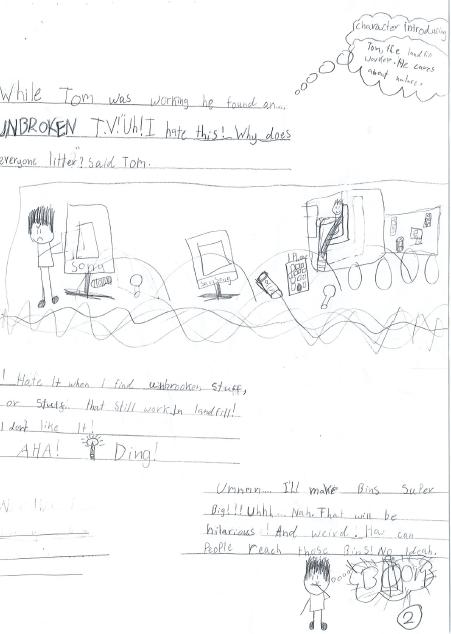 character introducing
Tom, the landfill
worker. He cares
about nature.
While Tom was working he found an...
UNBROKEN T.V! "Uh! I hate this! Why does
everyone litter? Said Tom.
Sony
Samsung
I Phone
I Hate It when I find unbroken stuff,
or stuff that still work In landfill!
I dont like It!
AHA! Ding!
Ummm.... I'll make Bins Super
Big!!! Uhhh... Nah. That will be
hilarious! And weird. How can
People reach those Bins! No Ideah.
2